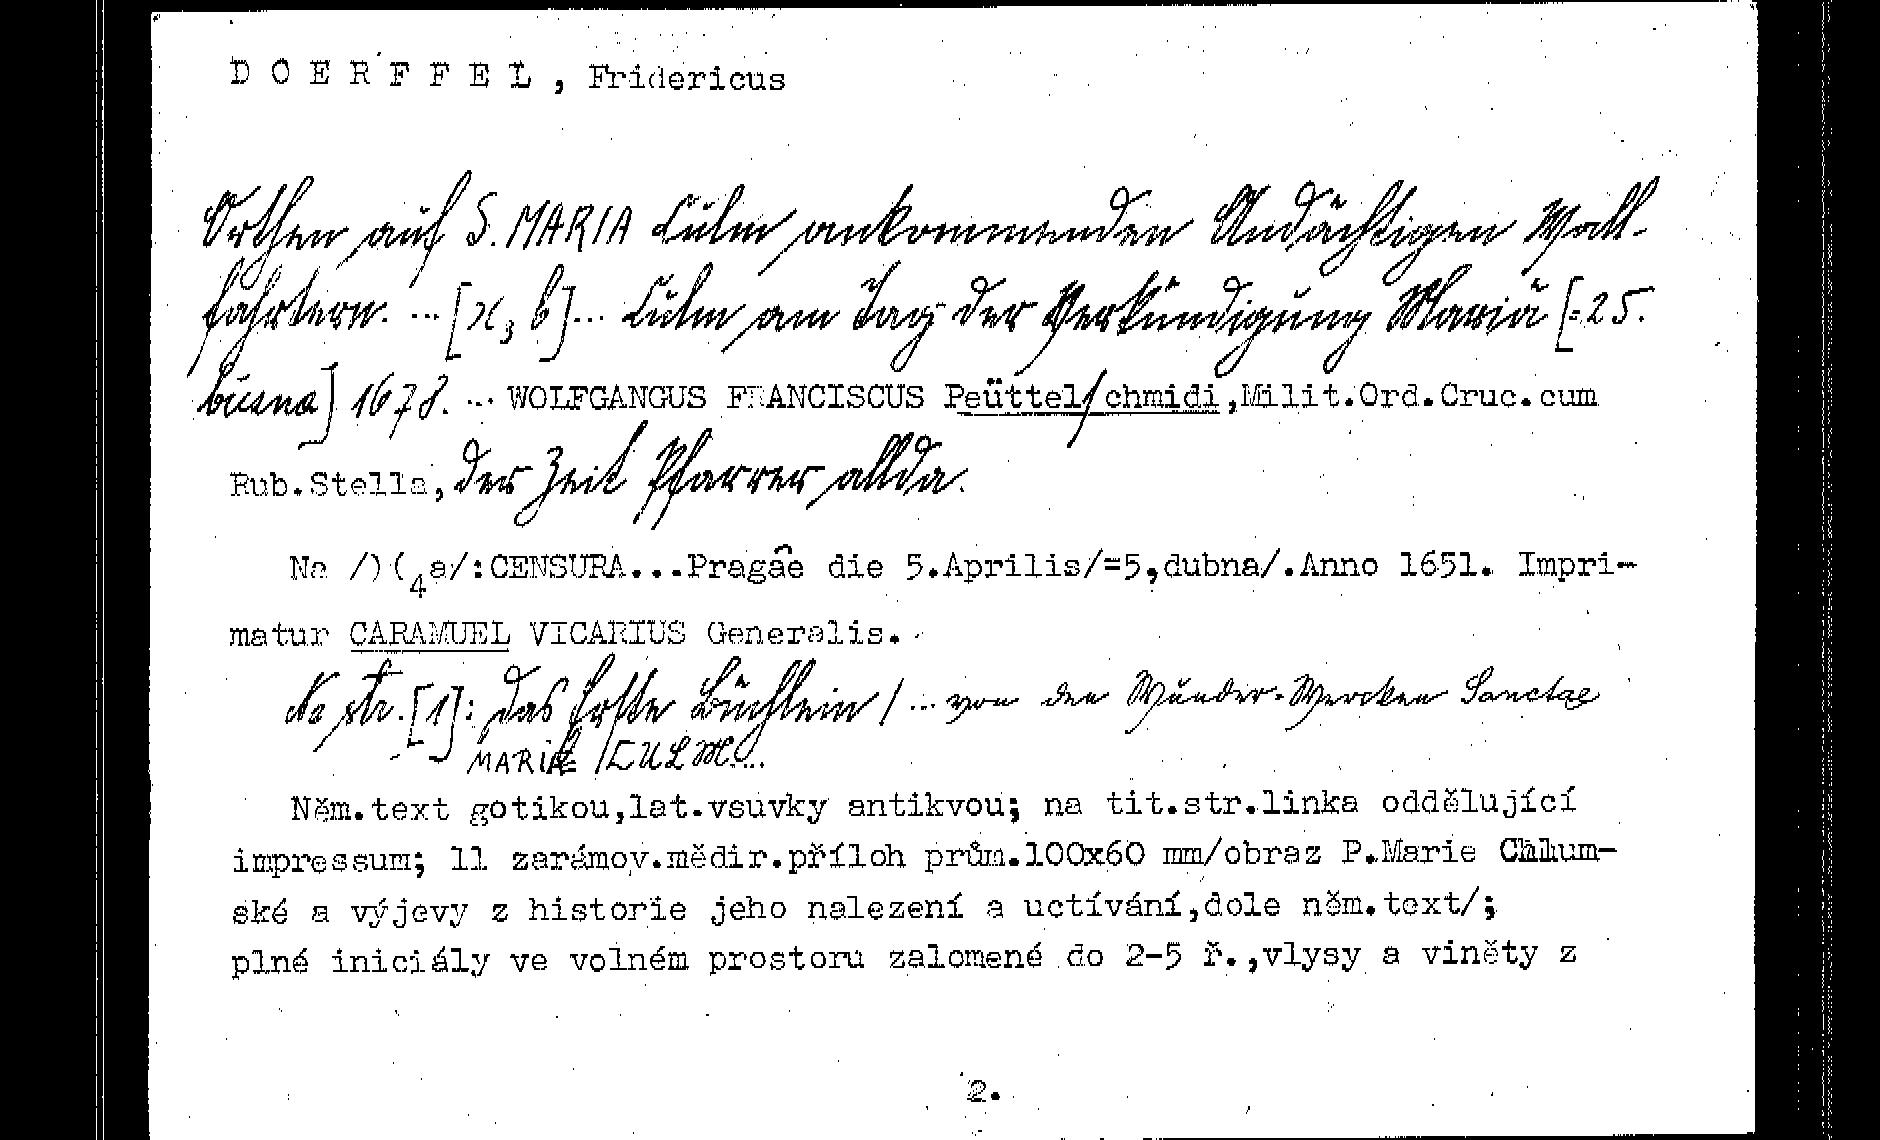 D O E R F F E L , Fridericus
Orthen auf S. MARIA Culm ankommenden Andächtigen Wall-
fahrtern. ... [x3 b] ... Culm am Tag der Verkündigung Mariä [=25.
března] 1678. ... WOLFGANGUS FRANCISCUS Peüttelſchmidi,Milit.Ord.Cruc.cum
Rub.Stella, der Zeit Pfarrer allda.
Na /)(4a/:CENSURA...Pragâe die 5.Aprilis/=5,dubna/.Anno 1651. Impri-
matur CARAMUEL VICARIUS Generalis.
Na str. [1]: Das Erſte Büchlein / ... von den Wunder-Wercken Sanctae
MARIÆ / CULM...
Něm.text gotikou,lat.vsuvky antikvou; na tit.str.linka oddělující
impressum; 11 zarámov.mědir.příloh prům.100x60 mm/obraz P.Marie Chlum-
ské a výjevy z historie jeho nalezení a uctívání,dole něm.text/;
plné iniciály ve volném prostoru zalomené do 2-5 ř.,vlysy a viněty z
2.